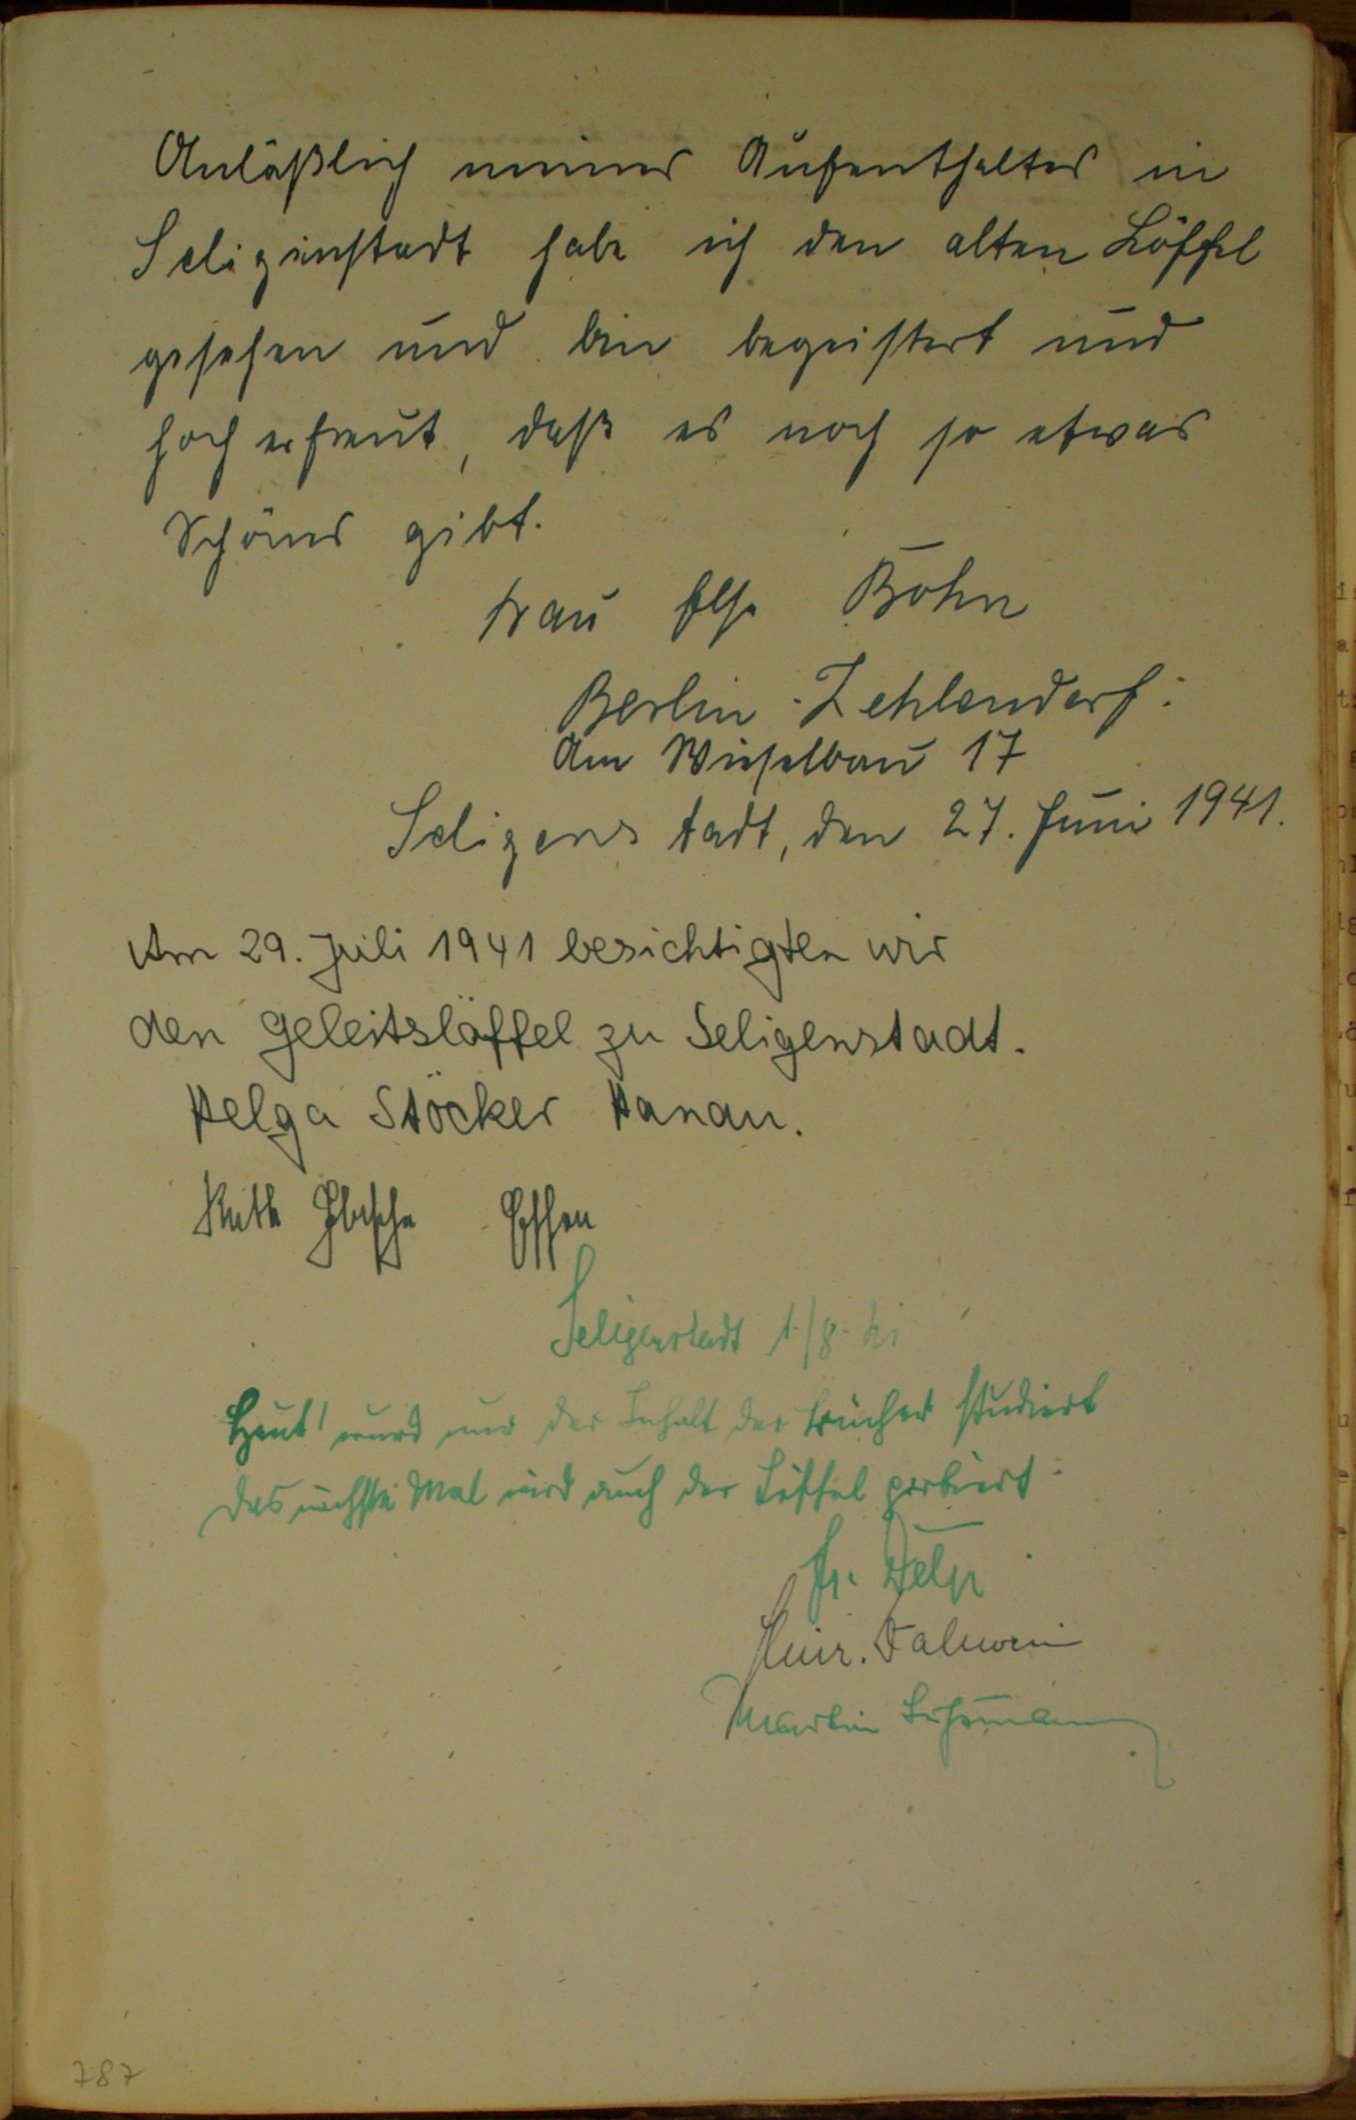 Anläßlich meines Aufenthaltes in
Seligenstadt habe ich den alten Löffel
gesehen und bin begeistert und
hoch erfreut, daß es noch so etwas
Schönes gibt.
Frau Else Böhn
Berlin-Zehlendorf:
Am Wieselbau 17
Seligenstadt, den 27. Juni 1941.
Am 29. Juli 1941 besichtigten wir
den Geleitslöffel zu Seligenstadt.
Helga Stöcker Hanau.
Ruth Essen
Seligenstadt 1./8. 41
Heut' wurd nur der Inhalt der Bücher studiert
Das nächste Mal wird auch der Löffel probiert.
Fr. Delp
Heinr.
Martin
787